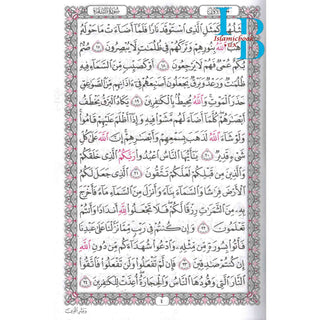 سُورَةُ البَقَرَةِ
IB
Islamicbooks
UK
مَثَلُهُمْ كَمَثَلِ ٱلَّذِى ٱسْتَوْقَدَ نَارًا فَلَمَّآ أَضَآءَتْ مَا حَوْلَهُۥ
ذَهَبَ ٱللَّهُ بِنُورِهِمْ وَتَرَكَهُمْ فِى ظُلُمَٰتٍ لَّا يُبْصِرُونَ ١٧ صُمٌّۢ
بُكْمٌ عُمْىٌ فَهُمْ لَا يَرْجِعُونَ ١٨ أَوْ كَصَيِّبٍ مِّنَ ٱلسَّمَآءِ فِيهِ
ظُلُمَٰتٌ وَرَعْدٌ وَبَرْقٌ يَجْعَلُونَ أَصَٰبِعَهُمْ فِىٓ ءَاذَانِهِم مِّنَ ٱلصَّوَٰعِقِ
حَذَرَ ٱلْمَوْتِ وَٱللَّهُ مُحِيطٌۢ بِٱلْكَٰفِرِينَ ١٩ يَكَادُ ٱلْبَرْقُ يَخْطَفُ
أَبْصَٰرَهُمْ كُلَّمَآ أَضَآءَ لَهُم مَّشَوْا۟ فِيهِ وَإِذَآ أَظْلَمَ عَلَيْهِمْ قَامُوا۟
وَلَوْ شَآءَ ٱللَّهُ لَذَهَبَ بِسَمْعِهِمْ وَأَبْصَٰرِهِمْ إِنَّ ٱللَّهَ عَلَىٰ كُلِّ
شَىْءٍ قَدِيرٌ ٢٠ يَٰٓأَيُّهَا ٱلنَّاسُ ٱعْبُدُوا۟ رَبَّكُمُ ٱلَّذِى خَلَقَكُمْ
وَٱلَّذِينَ مِن قَبْلِكُمْ لَعَلَّكُمْ تَتَّقُونَ ٢١ ٱلَّذِى جَعَلَ لَكُمُ
ٱلْأَرْضَ فِرَٰشًا وَٱلسَّمَآءَ بِنَآءً وَأَنزَلَ مِنَ ٱلسَّمَآءِ مَآءً فَأَخْرَجَ
بِهِۦ مِنَ ٱلثَّمَرَٰتِ رِزْقًا لَّكُمْ فَلَا تَجْعَلُوا۟ لِلَّهِ أَندَادًا وَأَنتُمْ
تَعْلَمُونَ ٢٢ وَإِن كُنتُمْ فِى رَيْبٍ مِّمَّا نَزَّلْنَا عَلَىٰ عَبْدِنَا
فَأْتُوا۟ بِسُورَةٍ مِّن مِّثْلِهِۦ وَٱدْعُوا۟ شُهَدَآءَكُم مِّن دُونِ ٱللَّهِ
إِن كُنتُمْ صَٰدِقِينَ ٢٣ فَإِن لَّمْ تَفْعَلُوا۟ وَلَن تَفْعَلُوا۟ فَٱتَّقُوا۟
ٱلنَّارَ ٱلَّتِى وَقُودُهَا ٱلنَّاسُ وَٱلْحِجَارَةُ أُعِدَّتْ لِلْكَٰفِرِينَ ٢٤
٤